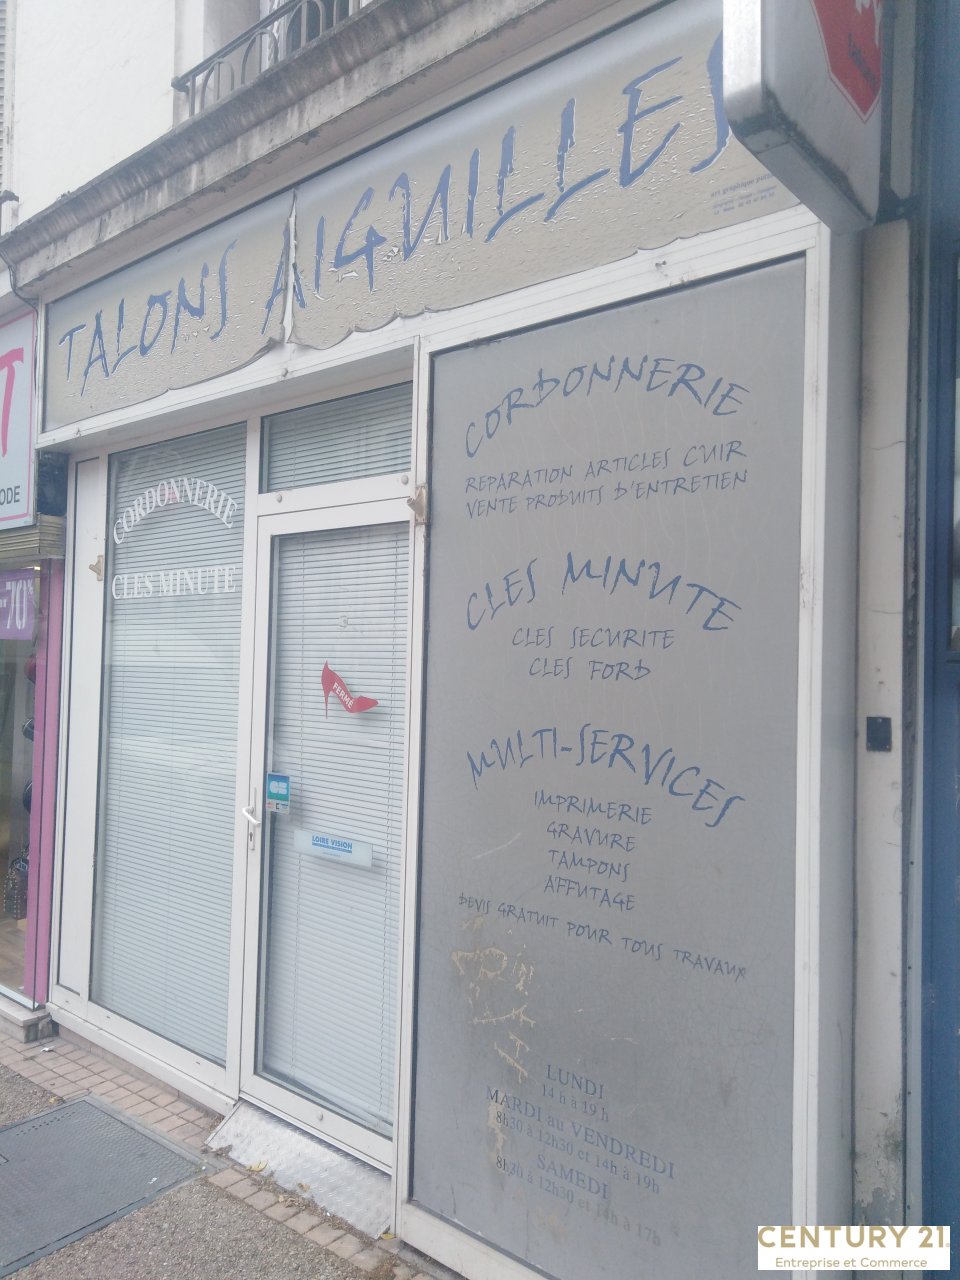 TALONS AIGUILLES
T
ODE
-70%
CORDONNERIE
CLES MINUTE
FERMÉ
CB
LOIRE VISION
CORDONNERIE
REPARATION ARTICLES CUIR
VENTE PRODUITS D'ENTRETIEN
CLES MINUTE
CLES SECURITE
CLES FORD
MULTI-SERVICES
IMPRIMERIE
GRAVURE
TAMPONS
AFFUTAGE
DEVIS GRATUIT POUR TOUS TRAVAUX
LUNDI
14 h à 19 h
MARDI au VENDREDI
8h30 à 12h30 et 14h à 19h
SAMEDI
8h30 à 12h30 et 14h à 17h
CENTURY 21.
Entreprise et Commerce